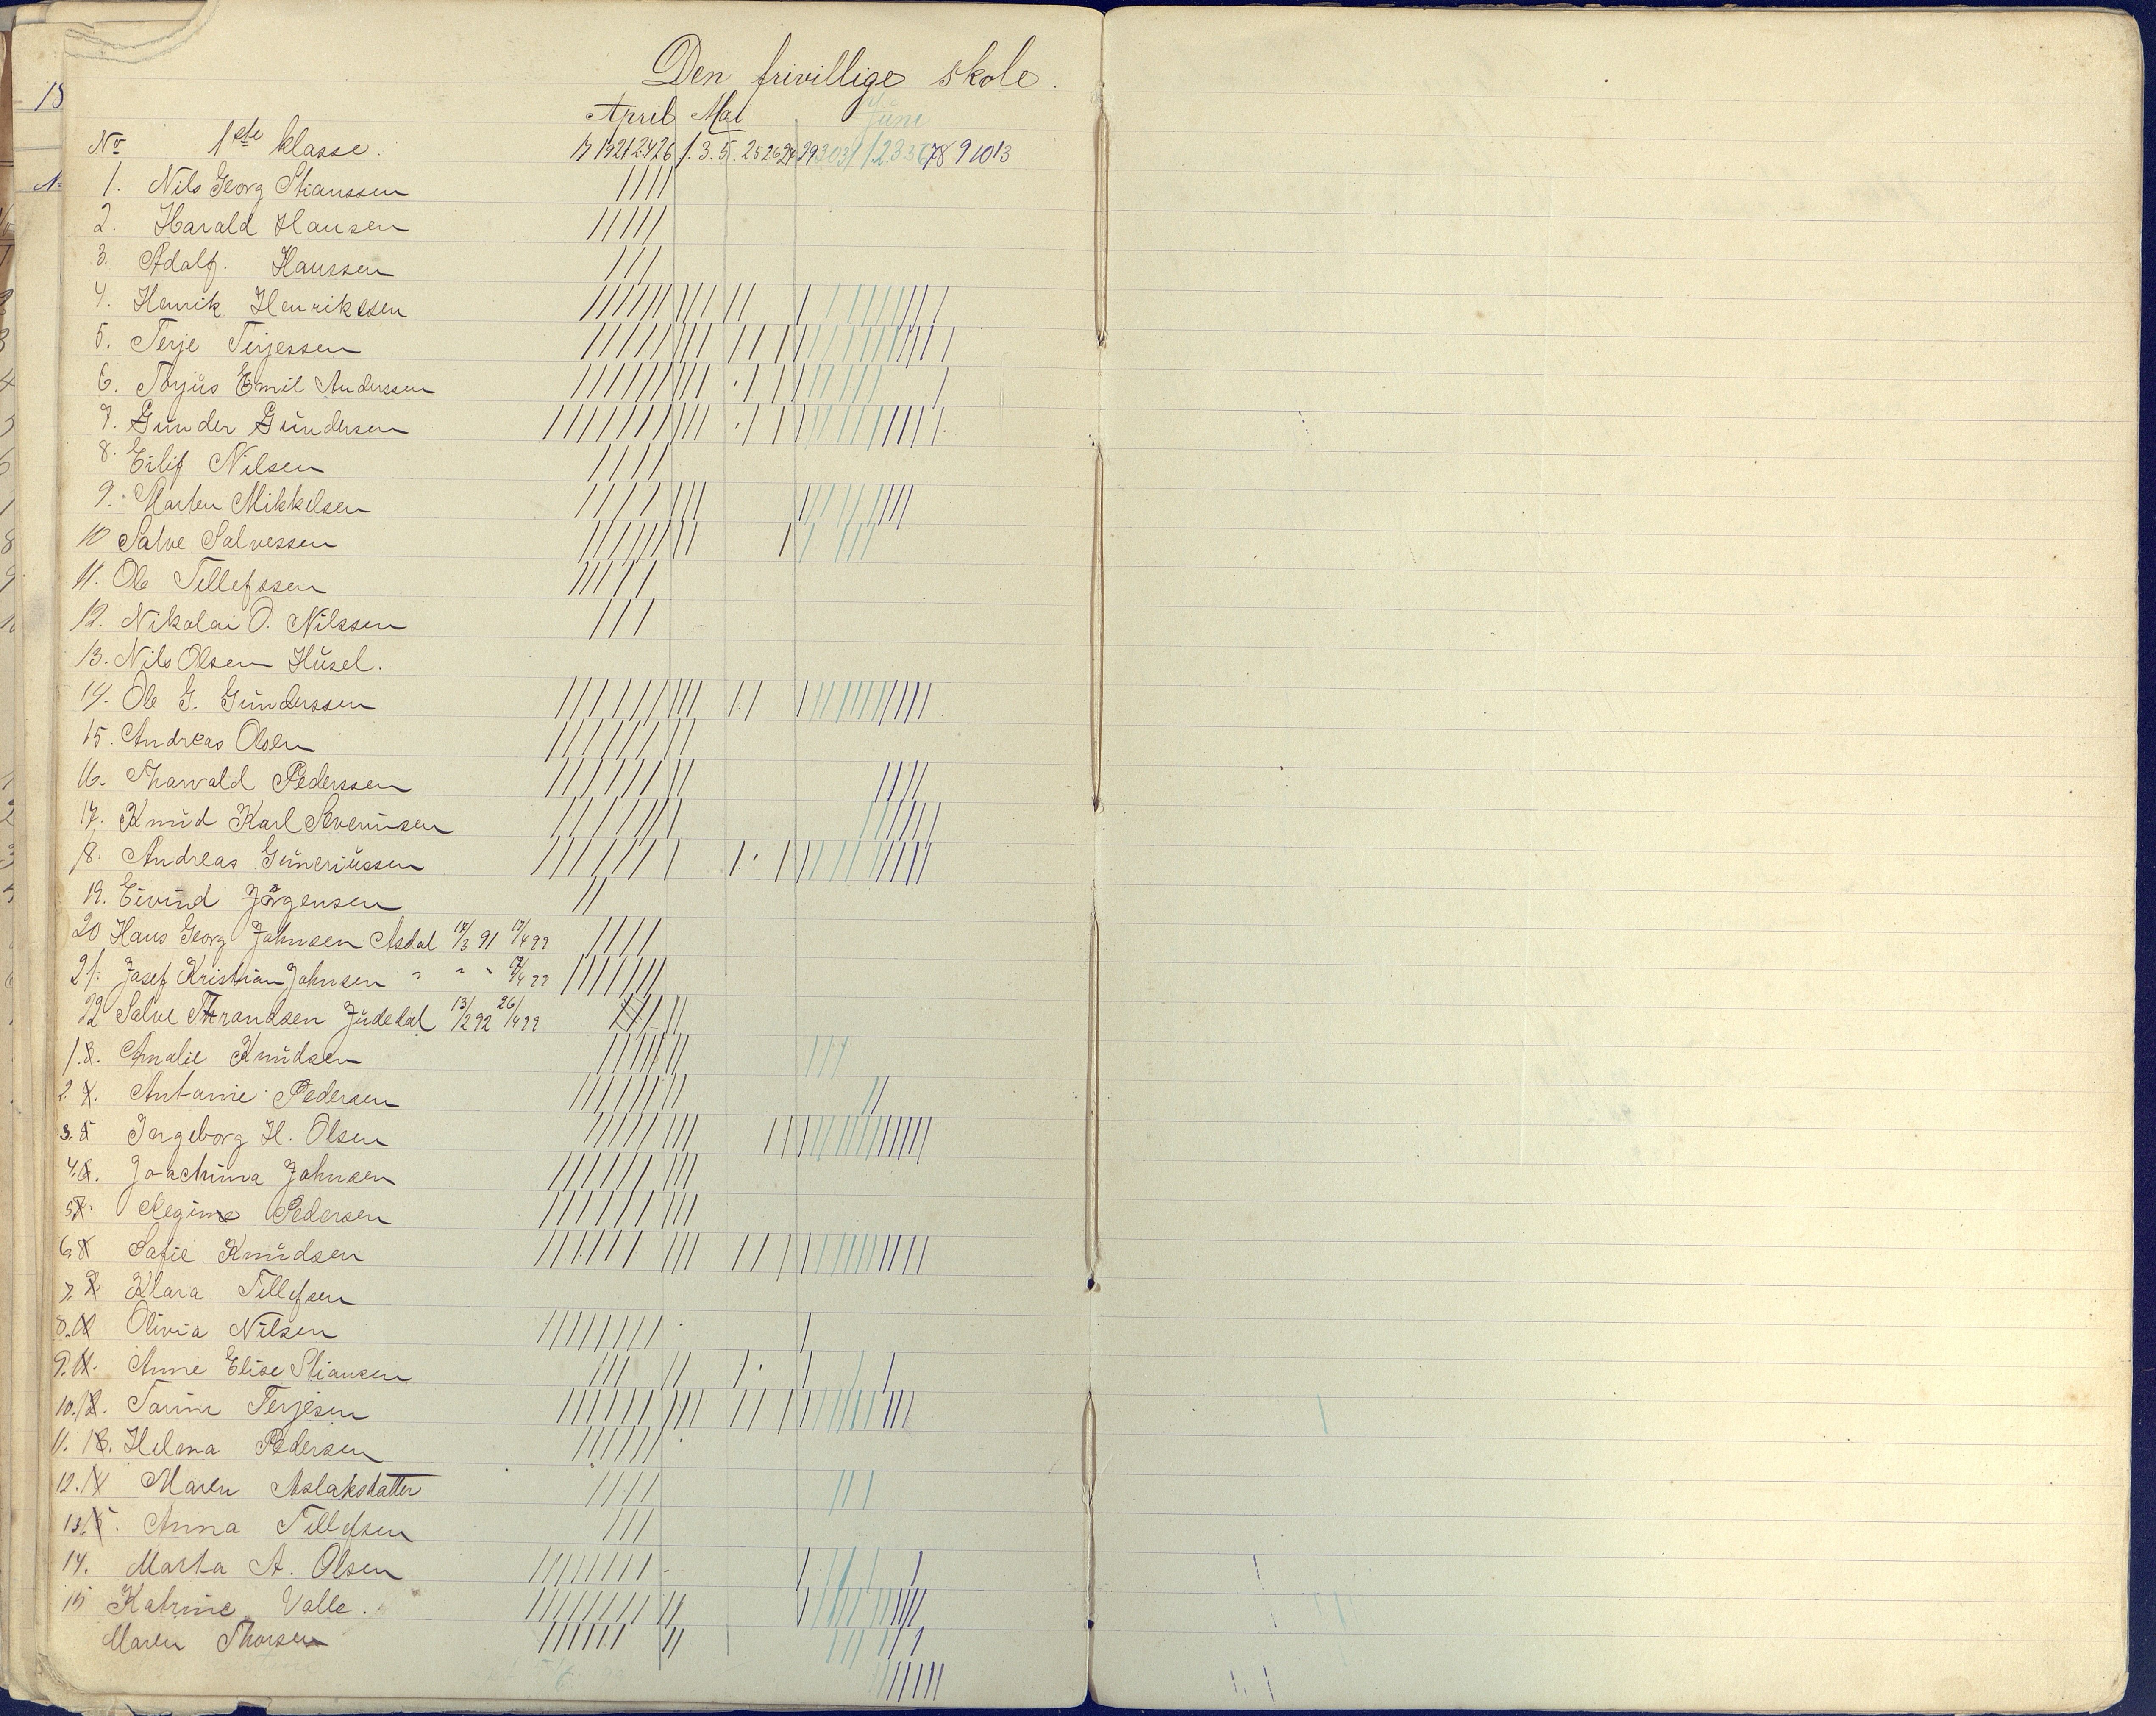 Den frivillige skole.
April Mai Juni
No 1ste klasse. 17 19 21 24 26 1. 3. 5. 25 26 27 29 30 31 1 2 3 5 6 7 8 9 10 13
1. Nils Georg Stianssen
2. Harald Hansen
3. Adolf. Hanssen
4. Henrik Henrikssen
5. Terje Terjessen
6. Torjus Emil Anderssen
7. Gunder Gundersen
8. Eilif Nilsen
9. Marten Mikkelsen
10 Salve Salvessen
11. Ole Tellefssen
12. Nikolai O. Nilssen
13. Nils Olsen Husel.
14. Ole G. Gunderssen
15. Andreas Olsen
16. Tharvald Pederssen
17. Knud Karl Severinsen
18. Andreas Guneriussen
19. Eivind Jörgensen
20 Hans Georg Johnsen Asdal 17/3 91 17/4 99
21. Josef Kristian Johnsen " " " 17/4 99
22 Salve Thrandsen Judedal 13/2 92 26/4 99
1. 3. Amalie Knudsen
2. 4. Antonie Pedersen
3. 5 Ingeborg H. Olsen
4. 6. Joachima Johnsen
5 7. Regine Pedersen
6. 8 Sofie Knudsen
7. 9 Klara Tellefsen
8. 10 Olivia Nilsen
9. 11. Anne Elise Stiansen
10. 12. Tomine Terjesen
11. 13. Helma Pedersen
12. 14 Maren Aslaksdatter
13. 15. Anna Tellefsen
14. Marta A. Olsen
15 Katrine Valle.
Maren Thorsen